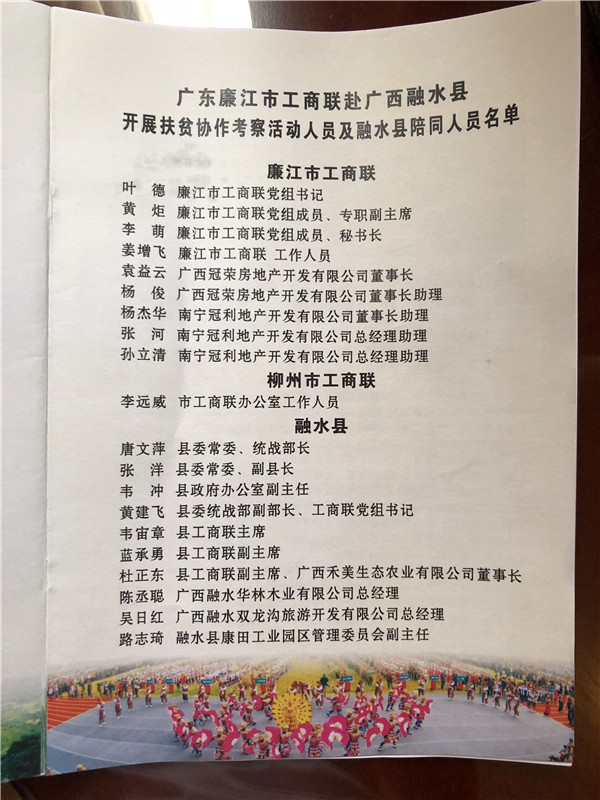 广东廉江市工商联赴广西融水县
开展扶贫协作考察活动人员及融水县陪同人员名单
廉江市工商联
叶 德 廉江市工商联党组书记
黄 炬 廉江市工商联党组成员、专职副主席
李 萌 廉江市工商联党组成员、秘书长
姜增飞 廉江市工商联 工作人员
袁益云 广西冠荣房地产开发有限公司董事长
杨 俊 广西冠荣房地产开发有限公司董事长助理
杨杰华 南宁冠利地产开发有限公司董事长助理
张 河 南宁冠利地产开发有限公司总经理助理
孙立清 南宁冠利地产开发有限公司总经理助理
柳州市工商联
李远威 市工商联办公室工作人员
融水县
唐文萍 县委常委、统战部长
张 洋 县委常委、副县长
韦 冲 县政府办公室副主任
黄建飞 县委统战部副部长、工商联党组书记
韦宙章 县工商联主席
蓝承勇 县工商联副主席
杜正东 县工商联副主席、广西禾美生态农业有限公司董事长
陈丞聪 广西融水华林木业有限公司总经理
吴日红 广西融水双龙沟旅游开发有限公司总经理
路志琦 融水县康田工业园区管理委员会副主任